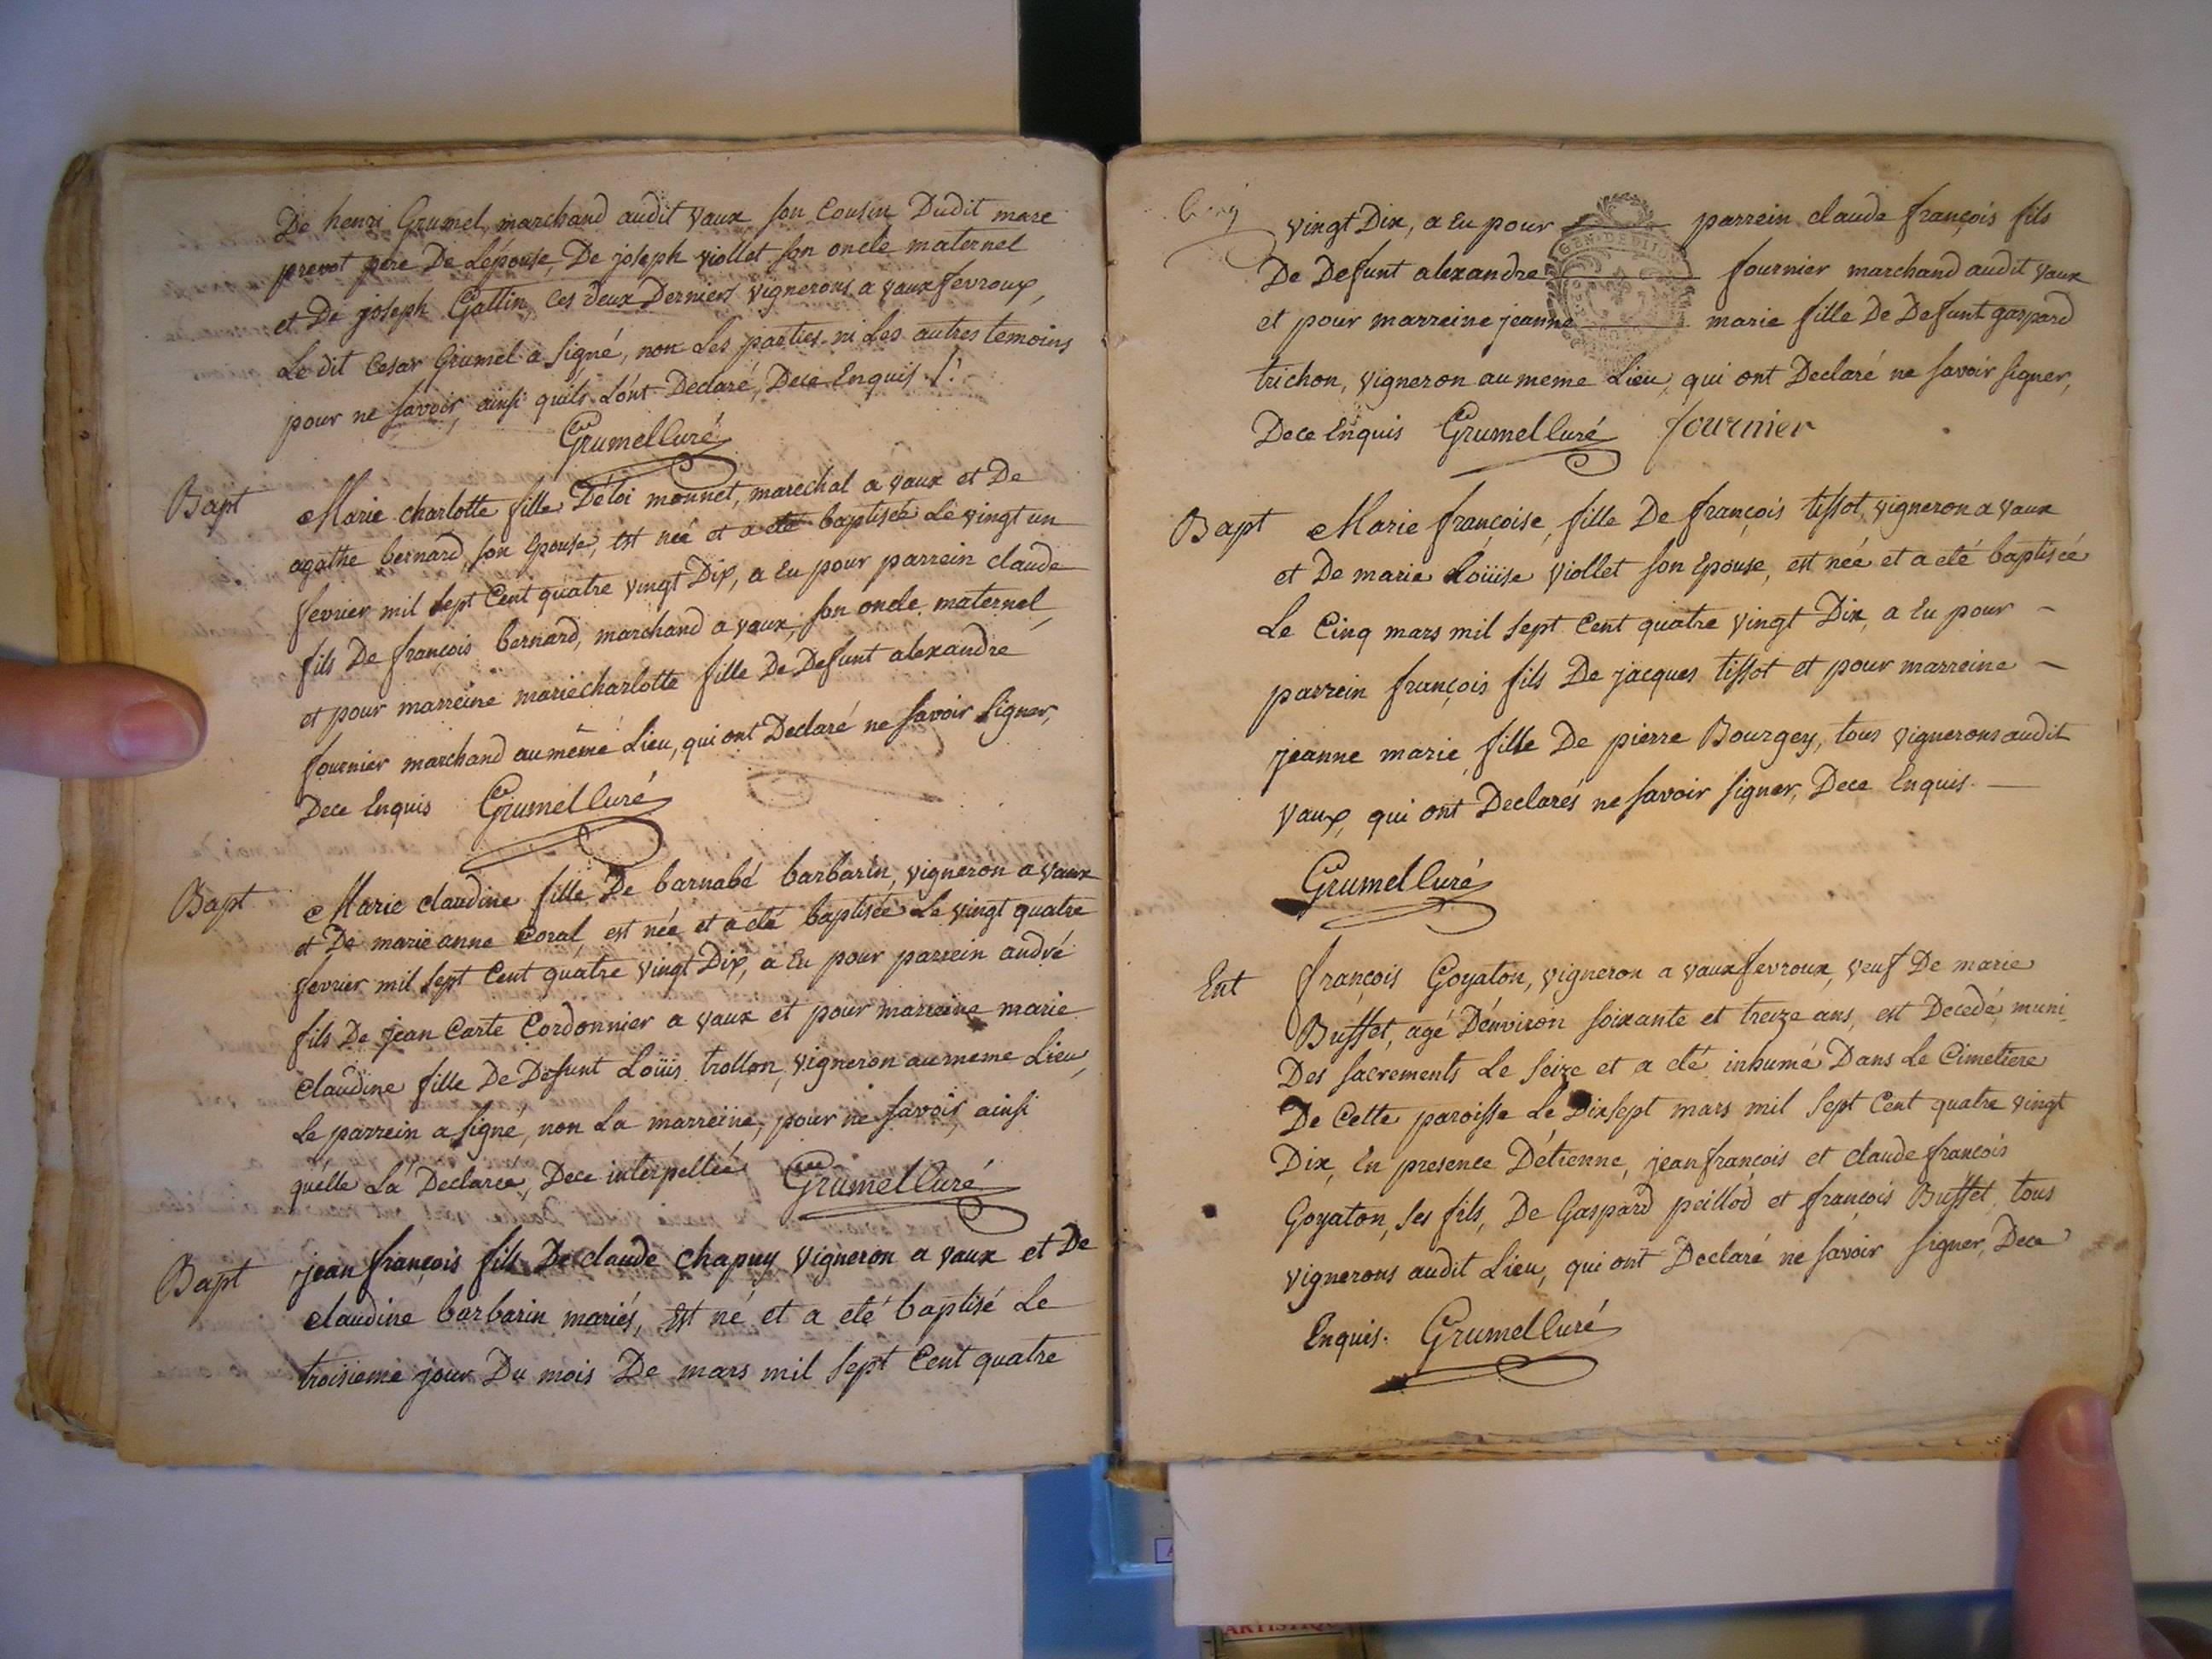 De henri Grumel, marchand audit vaux son Cousin Dudit marc
prevot pere De Lépouse, De joseph viollet son oncle maternel
et De joseph Gallin, ces deux Derniers vignerons a vauxfevroux,
Le dit Cesar Grumel a signé, non Les parties ni Les autres temoins
pour ne savoir, ainsi quils Lont Declaré, Dece Enquis ./.
Grumel Curé
Bapt
Marie charlotte fille Déloi monnet, marechal a vaux et De
agathe bernard son Epouse, est née et a eté baptisée Le vingt un
fevrier mil sept Cent quatre vingt Dix, a Eu pour parrein claude
fils De francois bernard, marchand a vaux, son oncle maternel,
et pour marreine mariecharlotte fille De Defunt alexandre
fournier marchand au même Lieu, qui ont Declaré ne savoir signer,
Dece Enquis Grumel Curé
Bapt
Marie claudine fille De barnabé barbarin, vigneron a vaux
et De marie anne Coral, est née et a eté baptisée Le vingt quatre
fevrier mil sept Cent quatre vingt Dix, a Eu pour parrein andré
fils De jean Carte Cordonnier a vaux et pour marreine marie
claudine fille De Defunt Loüis trollon, vigneron au meme Lieu,
Le parrein a signé, non La marreine, pour ne savoir, ainsi
quelle La Declarée, Dece interpellée Grumel Curé
Bapt
jean françois fils De claude chapuy vigneron a vaux et De
claudine barbarin mariés, Est né et a eté baptisé Le
troisieme jour Du mois De mars mil sept Cent quatre
Cinq
vingt Dix, a Eu pour parrein claude françois fils
De Defunt alexandre fournier marchand audit vaux
et pour marreine jeanne marie fille De Defunt gaspard
trichon, vigneron au meme Lieu, qui ont Declaré ne savoir signer,
Dece Enquis Grumel Curé fournier
Bapt
Marie françoise, fille De françois tissot, vigneron a vaux
et De marie Loüise viollet son Epouse, est née et a eté baptisée
Le Cinq mars mil sept Cent quatre vingt Dix, a Eu pour
parrein françois fils De jacques tissot et pour marreine
jeanne marie, fille De pierre Bourgey, tous vignerons audit
vaux, qui ont Declarés ne savoir signer, Dece Enquis.
Grumel Curé
Ent
françois Goyaton, vigneron a vauxfevroux, veuf De marie
Buffet, agé Dénviron soixante et treize ans, est Decedé, muni
Des sacrements Le seize et a eté inhumé Dans Le Cimetiere
De Cette paroisse Le Dixsept mars mil sept Cent quatre vingt
Dix, En presence Détienne, jeanfrançois et claudefrançois
Goyaton, ses fils, De Gaspard peillod et françois Buffet, tous
vignerons audit Lieu, qui ont Declaré ne savoir signer, Dece
Enquis. Grumel Curé
ARTISTIQU